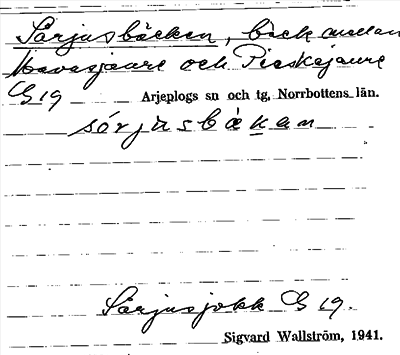 Sårjusbäcken, bäck mellan
Mavasjaure och Pieskejaure
G 19 Arjeplogs sn och tg, Norrbottens län.
sårjusbäkan
Sårjusjokk G 19.
Sigvard Wallström, 1941.